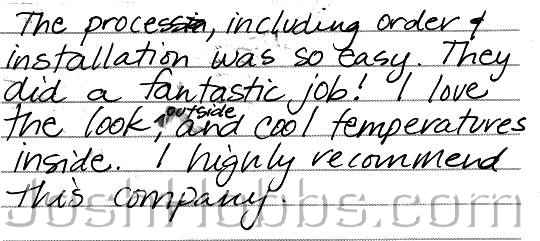 The process, including order &
installation was so easy. They
did a fantastic job! I love
the look, outside and cool temperatures
inside. I highly recommend
this company.
JoshHobbs.com